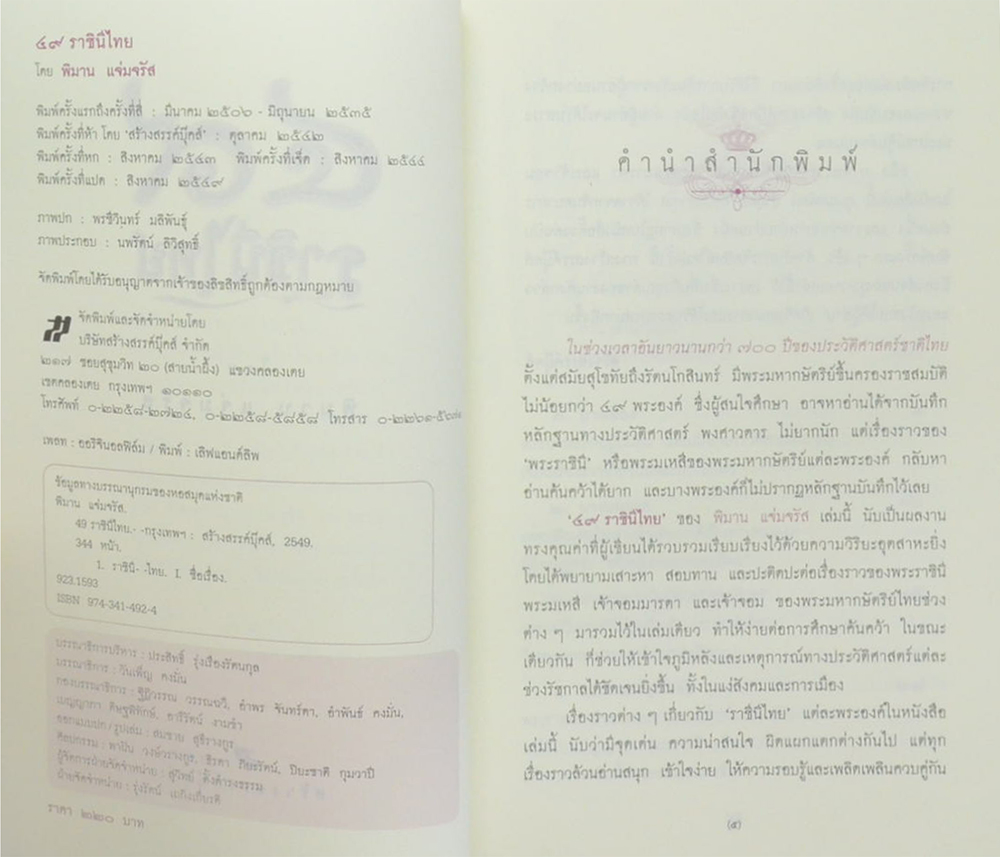 ๔๙ ราชินีไทย
โดย พิมาน แจ่มจรัส
พิมพ์ครั้งแรกถึงครั้งที่สี่ : มีนาคม ๒๕๐๖ - มิถุนายน ๒๕๓๕
พิมพ์ครั้งที่ห้า โดย 'สร้างสรรค์บุ๊คส์' : ตุลาคม ๒๕๔๒
พิมพ์ครั้งที่หก : สิงหาคม ๒๕๔๓ พิมพ์ครั้งที่เจ็ด : สิงหาคม ๒๕๔๔
พิมพ์ครั้งที่แปด : สิงหาคม ๒๕๔๙
ภาพปก : พรชีวินทร์ มลิพันธุ์
ภาพประกอบ : นพรัตน์ ลิวิสุทธิ์
จัดพิมพ์โดยได้รับอนุญาตจากเจ้าของลิขสิทธิ์ถูกต้องตามกฎหมาย
จัดพิมพ์และจัดจำหน่ายโดย
บริษัทสร้างสรรค์บุ๊คส์ จำกัด
๒๑๗ ซอยสุขุมวิท ๒๐ (สายน้ำผึ้ง) แขวงคลองเตย
เขตคลองเตย กรุงเทพฯ ๑๐๑๑๐
โทรศัพท์ ๐-๒๒๕๘-๒๗๒๔, ๐-๒๒๕๘-๕๘๕๘ โทรสาร
เพลท : ออริจินอลฟิล์ม / พิมพ์ : เลิฟแอนด์ลิพ
ข้อมูลทางบรรณานุกรมของหอสมุดแห่งชาติ
พิมาน แจ่มจรัส.
49 ราชินีไทย.- -กรุงเทพฯ : สร้างสรรค์บุ๊คส์, 2549.
344 หน้า.
1. ราชินี- -ไทย. I. ชื่อเรื่อง.
923.1593
ISBN 974-341-492-4
บรรณาธิการบริหาร : ประสิทธิ์ รุ่งเรืองรัตนกุล
บรรณาธิการ : วันเพ็ญ คงมั่น
กองบรรณาธิการ : ฐิฏิวรรณ วรรณฉวี, อำพร จันทร์ตา, อำพันธ์ คงมั่น,
เบญญาภา ดิษฐพิทักษ์, อารีรัตน์ งามขำ
ออกแบบปก / รูปเล่ม : สมชาย สุธีรางกูร
ศิลปกรรม : พาฝัน วงษ์วรางกูร, ธิรดา ภิยะรัตน์, ปิยะชาติ กุมวาปี
ผู้จัดการฝ่ายจัดจำหน่าย : สุวิทย์ ตั้งดำรงธรรม
ฝ่ายจัดจำหน่าย : รุ่งรัตน์
ราคา ๒๒๐ บาท
คำนำสำนักพิมพ์
ในช่วงเวลาอันยาวนานกว่า ๗๐๐ ปีของประวัติศาสตร์ชาติไทย
ตั้งแต่สมัยสุโขทัยถึงรัตนโกสินทร์ มีพระมหากษัตริย์ขึ้นครองราชสมบัติ
ไม่น้อยกว่า ๔๙ พระองค์ ซึ่งผู้สนใจศึกษา อาจหาอ่านได้จากบันทึก
หลักฐานทางประวัติศาสตร์ พงศาวดาร ไม่ยากนัก แต่เรื่องราวของ
'พระราชินี' หรือพระมเหสีของพระมหากษัตริย์แต่ละพระองค์ กลับหา
อ่านค้นคว้าได้ยาก และบางพระองค์ก็ไม่ปรากฏหลักฐานบันทึกไว้เลย
'๔๙ ราชินีไทย' ของ พิมาน แจ่มจรัส เล่มนี้ นับเป็นผลงาน
ทรงคุณค่าที่ผู้เขียนได้รวบรวมเรียบเรียงไว้ด้วยความวิริยะอุตสาหะยิ่ง
โดยได้พยายามเสาะหา สอบทาน และปะติดปะต่อเรื่องราวของพระราชินี
พระมเหสี เจ้าจอมมารดา และเจ้าจอม ของพระมหากษัตริย์ไทยช่วง
ต่าง ๆ มารวมไว้ในเล่มเดียว ทำให้ง่ายต่อการศึกษาค้นคว้า ในขณะ
เดียวกัน ก็ช่วยให้เข้าใจภูมิหลังและเหตุการณ์ทางประวัติศาสตร์แต่ละ
ช่วงรัชกาลได้ชัดเจนยิ่งขึ้น ทั้งในแง่สังคมและการเมือง
เรื่องราวต่าง ๆ เกี่ยวกับ 'ราชินีไทย' แต่ละพระองค์ในหนังสือ
เล่มนี้ นับว่ามีจุดเด่น ความน่าสนใจ ผิดแผกแตกต่างกันไป แต่ทุก
เรื่องราวล้วนอ่านสนุก เข้าใจง่าย ให้ความรอบรู้และเพลิดเพลินควบคู่กัน
(๕)